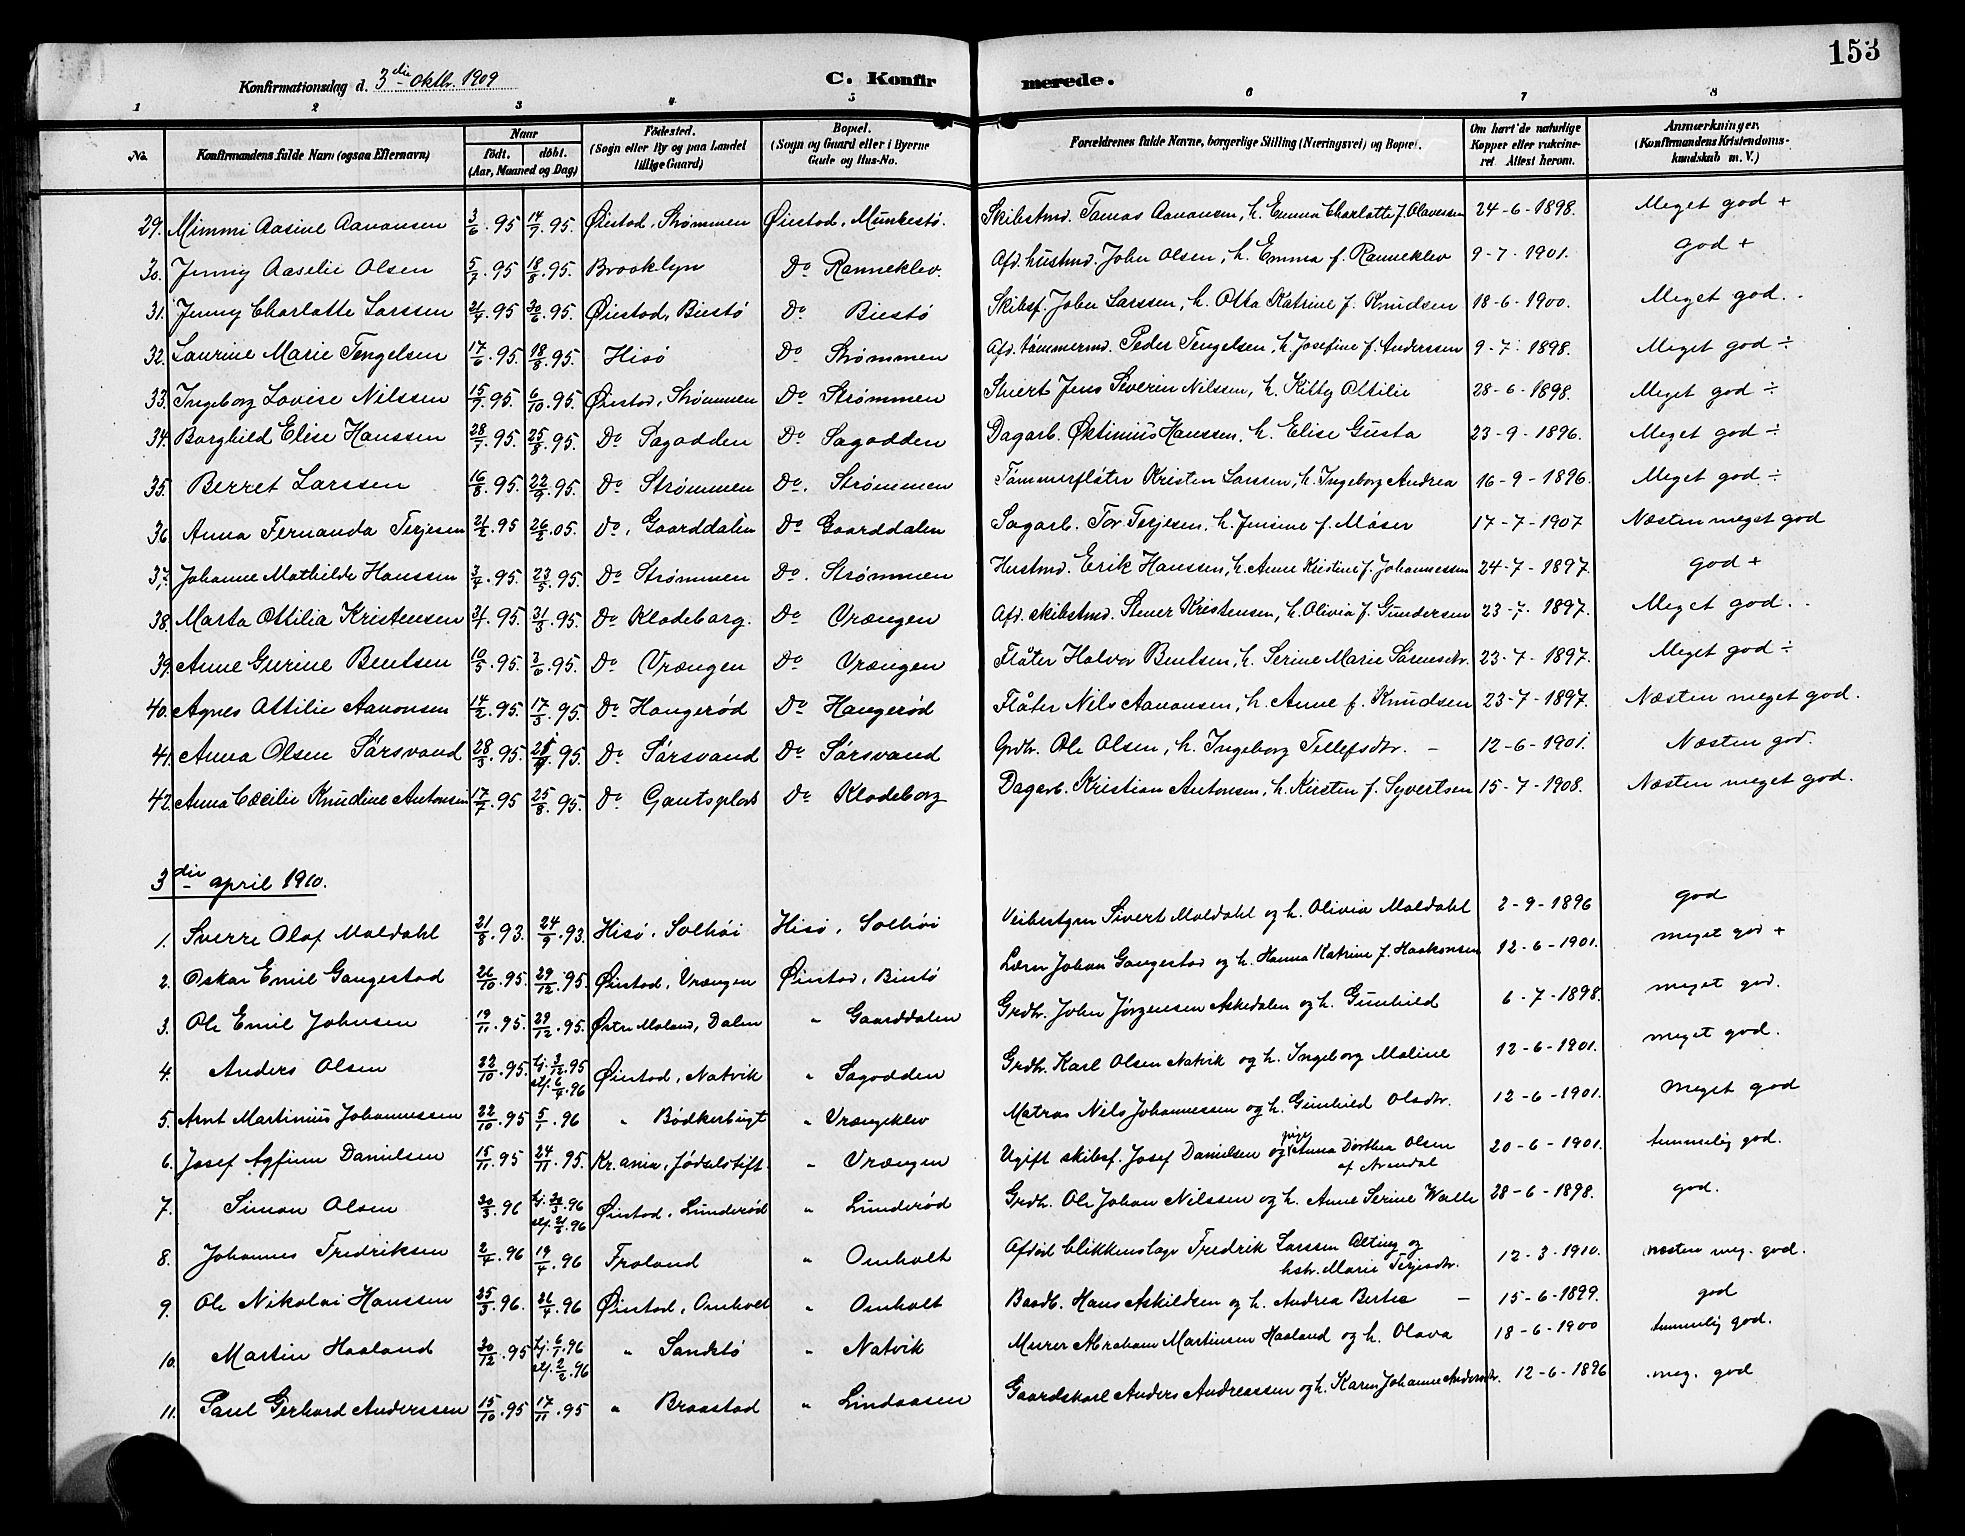 153
Konfirmationsdag d. 3die Oktbr. 1909 C. Konfirmerede.
1 2 3 4 5 6 7 8
No. Konfirmandens fulde Navn (ogsaa Efternavn) Naar født. døbt. (Aar, Maaned og Dag) Fødested. (Sogn eller By og paa Landet tillige Gaard) Bopæl. (Sogn og Gaard eller i Byerne Gade og Hus-No. Forældrenes fulde Navne, borgerlige Stilling (Næringsvei) og Bopæl. Om havt de naturlige Kopper eller vakcineret Attest herom. Anmærkninger, (Konfirmandens Kristendomskundskab m. V.)
29. Mimmi Aasine Aanonsen 3/6.95 14/7.95. Øiestad, Strømmen Øiestad, Munkestø. Skibstmd. Tomas Aanonsen, h. Emma Charlotte f. Olavessen 24-6-1898. Meget god +
30. Jenny Aaselie Olsen 5/7.95 18/8.95. Brooklyn Do Ranneklev. Afd. hustmd. John Olsen, h. Emma f. Ranneklev 9-7-1901. god +
31. Jenny Charlotte Larssen 21/4.95 30/6.95. Øiestad, Biestø Do Biestø Skibsf. John Larssen, h. Otta Katrine f. Knudsen 18-6-1900. Meget god.
32. Laurine Marie Tengelsen 17/6.95. 18/8.95. Hisø Do Strømmen Afd. tømmermd. Peder Tengelsen, h. Josefine f. Anderssen 9-7-1898. Meget god ÷
33. Ingeborg Lovise Nilssen 15/7.95. 6/10.95. Øiestad, Strømmen Do Strømmen Stuert Jens Severin Nilssen, h. Kitty Ottilie 28-6-1898. Meget god ÷
34. Borghild Elise Hanssen 28/7.95. 25/8.95. Do Sagodden Do Sagodden Dagarb. Øktinius Hanssen, h. Elise Gusta 23-9-1896. Meget god ÷
35. Berret Larssen 16/8.95. 22/9.95. Do Strømmen Do. Strømmen Tømmerfløter Kristen Larssen, h. Ingeborg Andrea 16-9-1896. Meget god ÷
36. Anna Fernanda Terjesen 21/2.95 26/2.05. Do, Gaarddalen Do Gaarddalen Sagarb. Tor Terjesen, h. Jensine f. Moser 17-7-1907 Næsten meget god
37. Johanne Mathilde Hanssen 3/4.95. 23/5.95. Do Strømmen Do. Strømmen Hustmd. Erik Hanssen, h. Anne Kristine f. Johannessen 24-7-1897. god +
38. Marta Ottilia Kristensen 31/1.95. 31/3.95. Do Klodeborg. Do Vrængen Afd. skibstmd. Stener Kristensen, h. Olivia f. Gundersen 23-7-1897. Meget god.
39. Anne Gurine Bentsen 10/5.95. 3/6.95. Do Vrængen Do Vrængen Fløter Halvor Bentsen, h. Serine Marie Sørensdtr. 23-7-1897. Meget god ÷
40. Agnes Ottilie Aanonsen 14/2.95. 17/3.95. Do Haugerød Do Haugerød Fløter Nils Aanonsen, h. Anne f. Knudsen 23-7-1897. Næsten meget god.
41. Anna Olsen Sørsvand 28/3.95. .95 Do Sørsvand Do Sørsvand Grdbr. Ole Olsen, h. Ingeborg Tellefsdtr. – 12-6-1901. Næsten god.
42. Anna Cæcilie Knudine Antonsen 17/7.95 25/8.95. Do Gautsplass Do Klodeborg Dagarb. Kristian Antonsen, h. Kirsten f. Syvertsen 15-7-1908. Næsten meget god.
3die april 1910.
1. Sverre Olaf Moldahl 21/8.93. 24/9.93. Hisø, Solhøi Hisø, Solhøi Veibestyrer Sivert Moldahl og h. Olivia Moldahl 2-9-1896 god
2. Oskar Emil Gangestad 26/10.95. 29/12.95. Øiestad, Vrængen Øiestad, Biestø Lærer Johan Gangestad og h. Hanna Katrine f. Haakonsen 12-6-1901. meget god +
3. Ole Emil Johnsen 19/11.95. 29/12.95. Østre Moland, Dalen " Gaarddalen Grdbr. John Jørgensen Askedalen og h. Gunhild 6-7-1898. meget god.
4. Anders Olsen 22/10.95. hj. 3/12.95 stf. 6/4.96 Øiestad, Natvik " Sagodden Grdbr. Karl Olsen Natvik og h. Ingeborg Maline 12-6-1901. meget god.
5. Arnt Martinius Johannessen 22/10.95 5/1.96 " Bødkerbugt " Vrængeklev Matros Nils Johannessen og h. Gunhild Olsdtr. 12-6-1901. Meget god
6. Josef Agfinn Danielsen 15/11.95 24/11.95. Kr.ania, Fødselstift. " Vrængen Ugift skibsf. Josef Danielsen og pige Anna Dorthea Olsen af Arendal 20-6-1901. temmelig god.
7. Simon Olsen 20/3.96 hj. .96 stf. .96 Øiestad, Lunderød " Lunderød Grdbr. Ole Johan Nilssen og h. Anne Serine Walle 28-6-1898. god.
8. Johannes Fredriksen 2/4.96 19/4.96 Froland " Omholt Afdød blikkenslager Fredrik Larssen Alting og hstr. Marie Terjesdtr. 12-3-1910. næsten meg. god.
9. Ole Nikolai Hanssen 25/3.96. 26/4.96 Øiestad, Omholt " Omholt Baadb. Hans Askildsen og h. Andrea Berte – 15-6-1899. god
10. Martin Haaland 30/12.95 hj. 6/1.96 stf. 2/2.96 " Sandstø " Natvik Murer Abraham Martinsen Haaland og h. Olava 18-6-1900 temmelig god.
11. Paul Gerhard Anderssen 15/10.95 17/11.95 " Braastad " Lindaasen Gaardskarl Anders Andreassen og h. Karen Johanne Andersdtr. 12-6-1896 meg. god